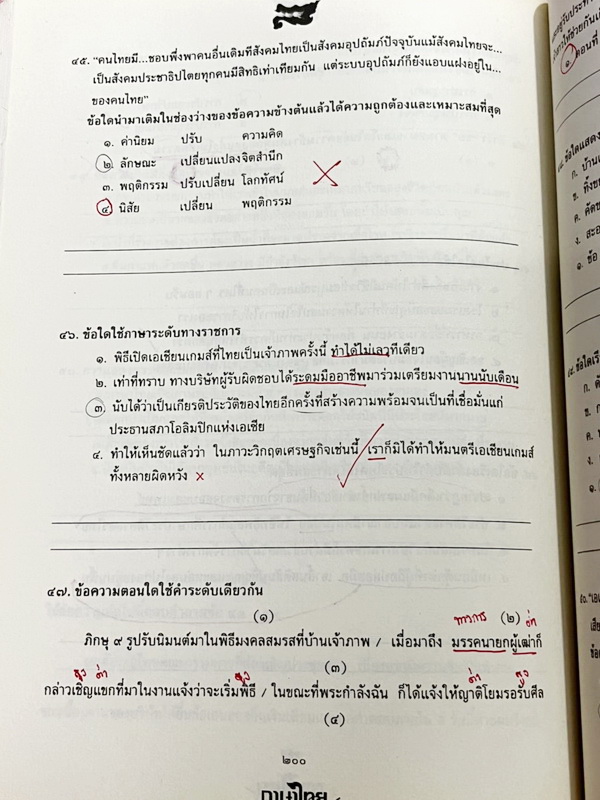 ๔๕. "คนไทยมี...ชอบพึ่งพาคนอื่นเดิมทีสังคมไทยเป็นสังคมอุปถัมภ์ปัจจุบันแม้สังคมไทยจะ...
เป็นสังคมประชาธิปไตยทุกคนมีสิทธิเท่าเทียมกัน แต่ระบบอุปถัมภ์ก็ยังแอบแฝงอยู่ใน...
ของคนไทย"
ข้อใดนำมาเติมในช่องว่างของข้อความข้างต้นแล้วได้ความถูกต้องและเหมาะสมที่สุด
๑. ค่านิยม ปรับ ความคิด
๒. ลักษณะ เปลี่ยนแปลง จิตสำนึก
๓. พฤติกรรม ปรับเปลี่ยน โลกทัศน์
๔. นิสัย เปลี่ยน พฤติกรรม
๔๖. ข้อใดใช้ภาษาระดับทางราชการ
๑. พิธีเปิดเอเชียนเกมส์ที่ไทยเป็นเจ้าภาพครั้งนี้ ทำได้ไม่เลวทีเดียว
๒. เท่าที่ทราบ ทางบริษัทผู้รับผิดชอบได้ระดมมืออาชีพมาร่วมเตรียมงานนานนับเดือน
๓. นับได้ว่าเป็นเกียรติประวัติของไทยอีกครั้งที่สร้างความพร้อมจนเป็นที่เชื่อมั่นแก่
ประธานสภาโอลิมปิกแห่งเอเชีย
๔. ทำให้เห็นชัดแล้วว่า ในภาวะวิกฤตเศรษฐกิจเช่นนี้ เราก็มิได้ทำให้มนตรีเอเชียนเกมส์
ทั้งหลายผิดหวัง x
๔๗. ข้อความตอนใดใช้คำระดับเดียวกัน
(๑) ทางการ (๒) ต่ำ
ภิกษุ ๙ รูปรับนิมนต์มาในพิธีมงคลสมรสที่บ้านเจ้าภาพ / เมื่อมาถึง มรรคนายกผู้เฒ่าก็
สูง ต่ำ สูง (๓) ต่ำ สูง
กล่าวเชิญแขกที่มาในงานแจ้งว่าจะเริ่มพิธี / ในขณะที่พระกำลังฉัน ก็ได้แจ้งให้ญาติโยมรอรับศีล
(๔)
๒๐๐
ภาษาไทย